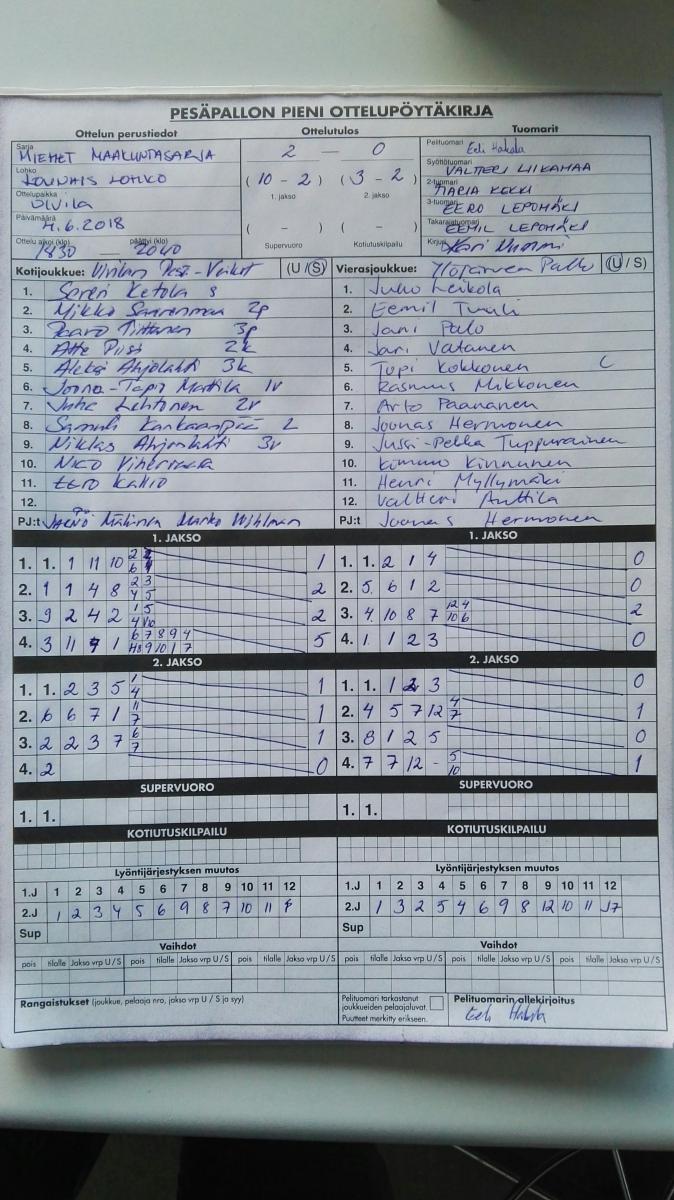 PESÄPALLON PIENI OTTELUPÖYTÄKIRJA
Ottelun perustiedot
Sarja
MIEHET MAAKUNTASARJA
Lohko
LOUNAIS LOHKO
Ottelupaikka
Ulvila
Päivämäärä
4.6.2018
Ottelu alkoi (klo) päättyi (klo)
1830 — 2040
Ottelutulos
2 — 0
( 10 - 2 ) ( 3 - 2 )
1. jakso 2. jakso
( - ) ( - )
Supervuoro Kotiutuskilpailu
Tuomarit
Pelituomari Eeli Hakala
Syöttötuomari
VALTTERI LIIKAMAA
2-tuomari
MARIA KEKKI
3-tuomari
EERO LEPOMÄKI
Takarajatuomari
EEMIL LEPOMÄKI
Kirjuri Kari Nummi
Kotijoukkue: Ulvilan Pesä-Veikot (U/S)
1. Sereri Ketola s
2. Mikko Saarenmaa 2p
3. Paavo Tiittanen 3p
4. Atte Piisi 2k
5. Aleksi Ahjolahti 3k
6. Joona-Tapio Mattila 1v
7. Juha Lehtonen 2v
8. Samuli Kankaanpää L
9. Niklas Ahjolahti 3v
10. Nico Viheriävaara
11. Eero Kallio
12.
PJ:t Mäkinen Marko Wihlman
Vierasjoukkue: Ylöjärven Pallo (U/S)
1. Juho Leikola
2. Eemil Tuuli
3. Jani Palo
4. Jari Vatanen
5. Topi Kokkonen C
6. Rasmus Mikkonen
7. Arto Paananen
8. Joonas Hermonen
9. Jussi-Pekka Tuppurainen
10. Kimmo Kinnunen
11. Henri Myllymäki
12. Valtteri Anttila
PJ:t Joonas Hermonen
1. JAKSO
1. 1. 1 11 10 1
2. 1 1 4 8 2 3 4 5 2
3. 9 2 4 2 1 5 4 10 2
4. 3 11 9 1 6 7 8 9 4 9 10 1 7 5
1. JAKSO
1. 1. 2 1 4 0
2. 5 6 1 2 0
3. 4 10 8 7 12 4 10 6 2
4. 1 1 2 3 0
2. JAKSO
1. 1. 2 3 5 1 4 1
2. 6 6 7 1 11 7 1
3. 2 2 3 7 6 7 1
4. 2 0
2. JAKSO
1. 1. 1 2 3 0
2. 4 5 7 12 4 7 1
3. 8 1 2 5 0
4. 7 7 12 - 5 10 1
SUPERVUORO
1. 1.
SUPERVUORO
1. 1.
KOTIUTUSKILPAILU
KOTIUTUSKILPAILU
Lyöntijärjestyksen muutos
1.J 1 2 3 4 5 6 7 8 9 10 11 12
2.J 1 2 3 4 5 6 9 8 7 10 11
Sup
Lyöntijärjestyksen muutos
1.J 1 2 3 4 5 6 7 8 9 10 11 12
2.J 1 3 2 5 4 6 9 8 12 10 11 7
Sup
Vaihdot
pois tilalle Jakso vrp U/S pois tilalle Jakso vrp U/S pois tilalle Jakso vrp U/S
Vaihdot
pois tilalle Jakso vrp U/S pois tilalle Jakso vrp U/S pois tilalle Jakso vrp U/S
Rangaistukset (joukkue, pelaaja nro, jakso vrp U / S ja syy)
Pelituomari tarkastanut
joukkueiden pelaajaluvat.
Puutteet merkitty erikseen.
Pelituomarin allekirjoitus
Eeli Hakala